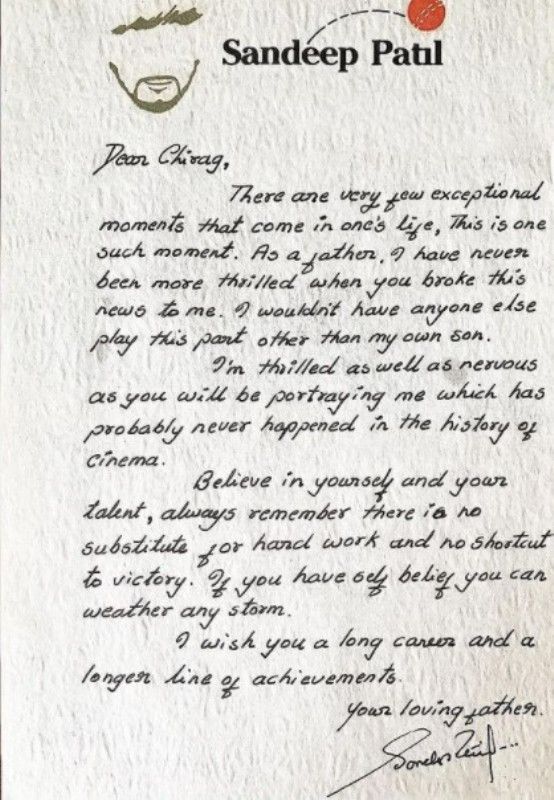 Sandeep Patil
Dear Chirag,
There are very few exceptional
moments that come in one's life, This is one
such moment. As a father, I have never
been more thrilled when you broke this
news to me. I wouldn't have anyone else
play this part other than my own son.
I'm thrilled as well as nervous
as you will be portraying me which has
probably never happened in the history of
cinema.
Believe in yourself and your
talent, always remember there is no
substitute for hard work and no shortcut
to victory. If you have self belief you can
weather any storm.
I wish you a long career and a
longer line of achievements.
Your loving father.